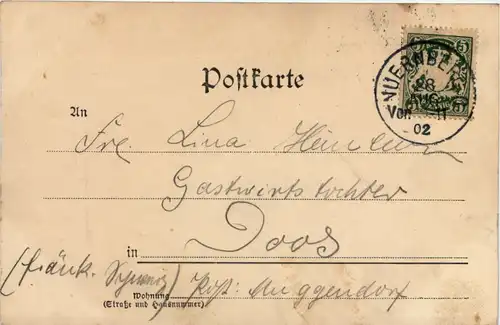 Postkarte
NUERNBERG
28
AUG
Vor. 11
02
5
An
Frl. Lina
Gastwirtstochter
in Doos
(fränk. Schweiz) Post: Muggendorf
Wohnung
(Straße und Hausnummer)